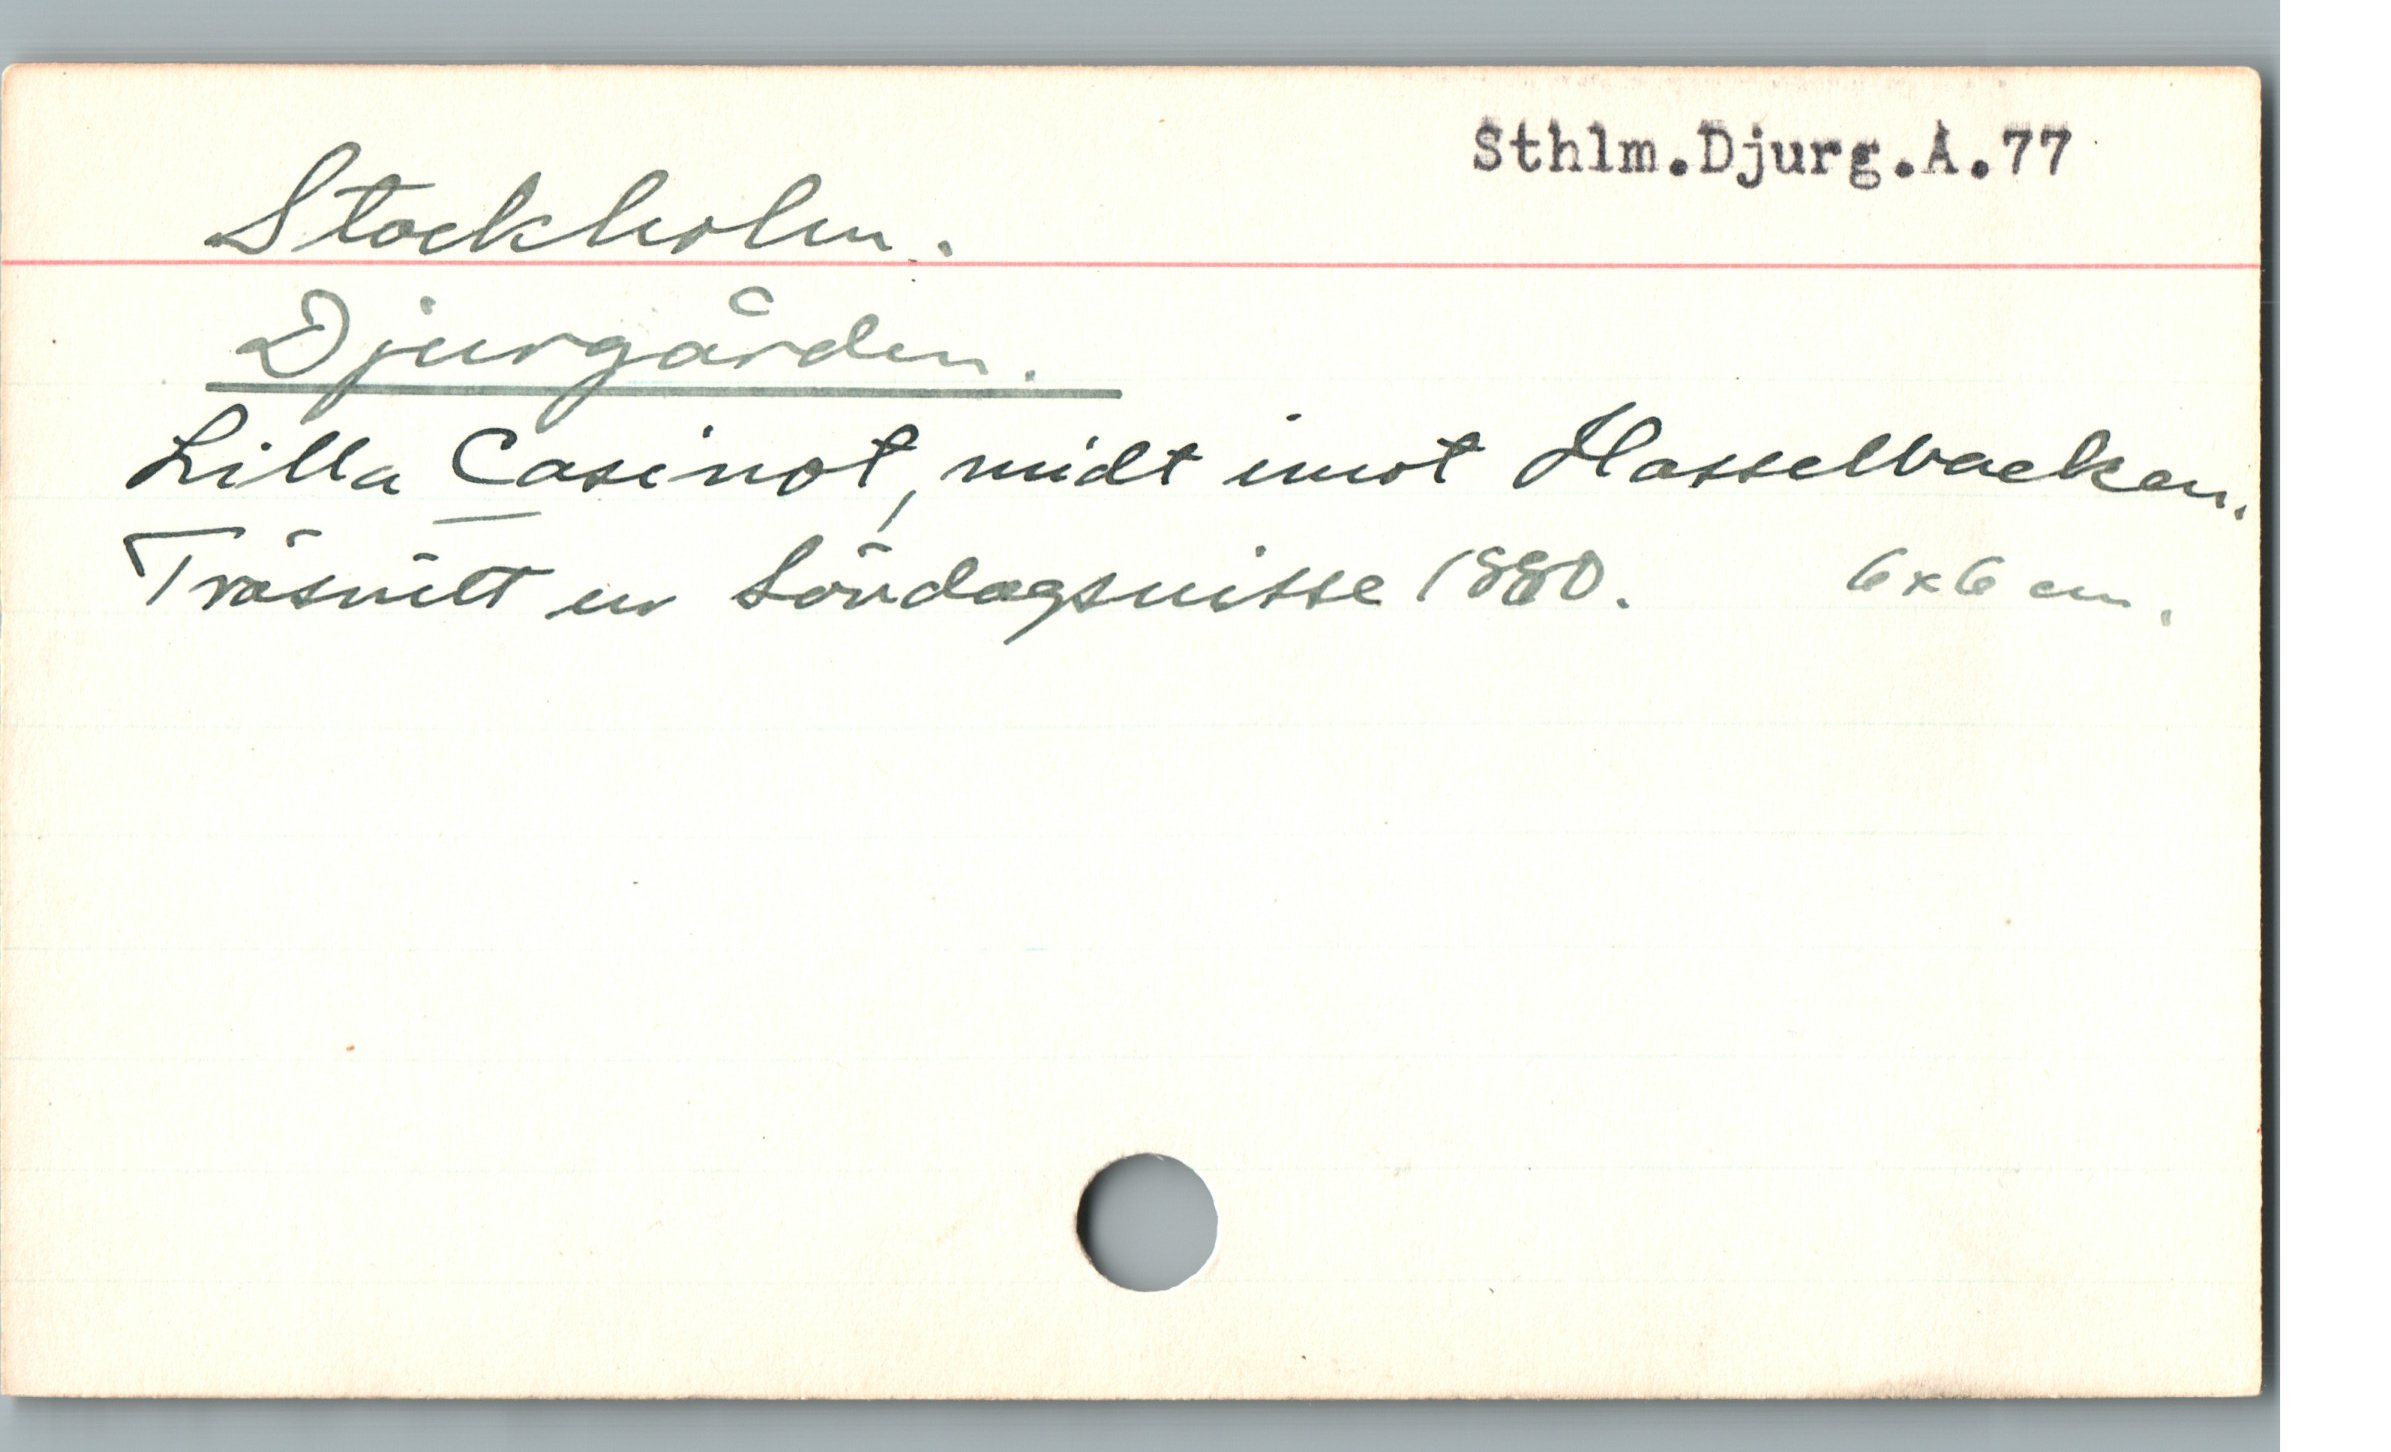 Sthlm.Djurg.A.77
Stockholm.
Djurgården.
Lilla Casinot, midt imot Hasselbacken.
Träsnitt ur Söndagsnisse 1880. 6x6 cm.